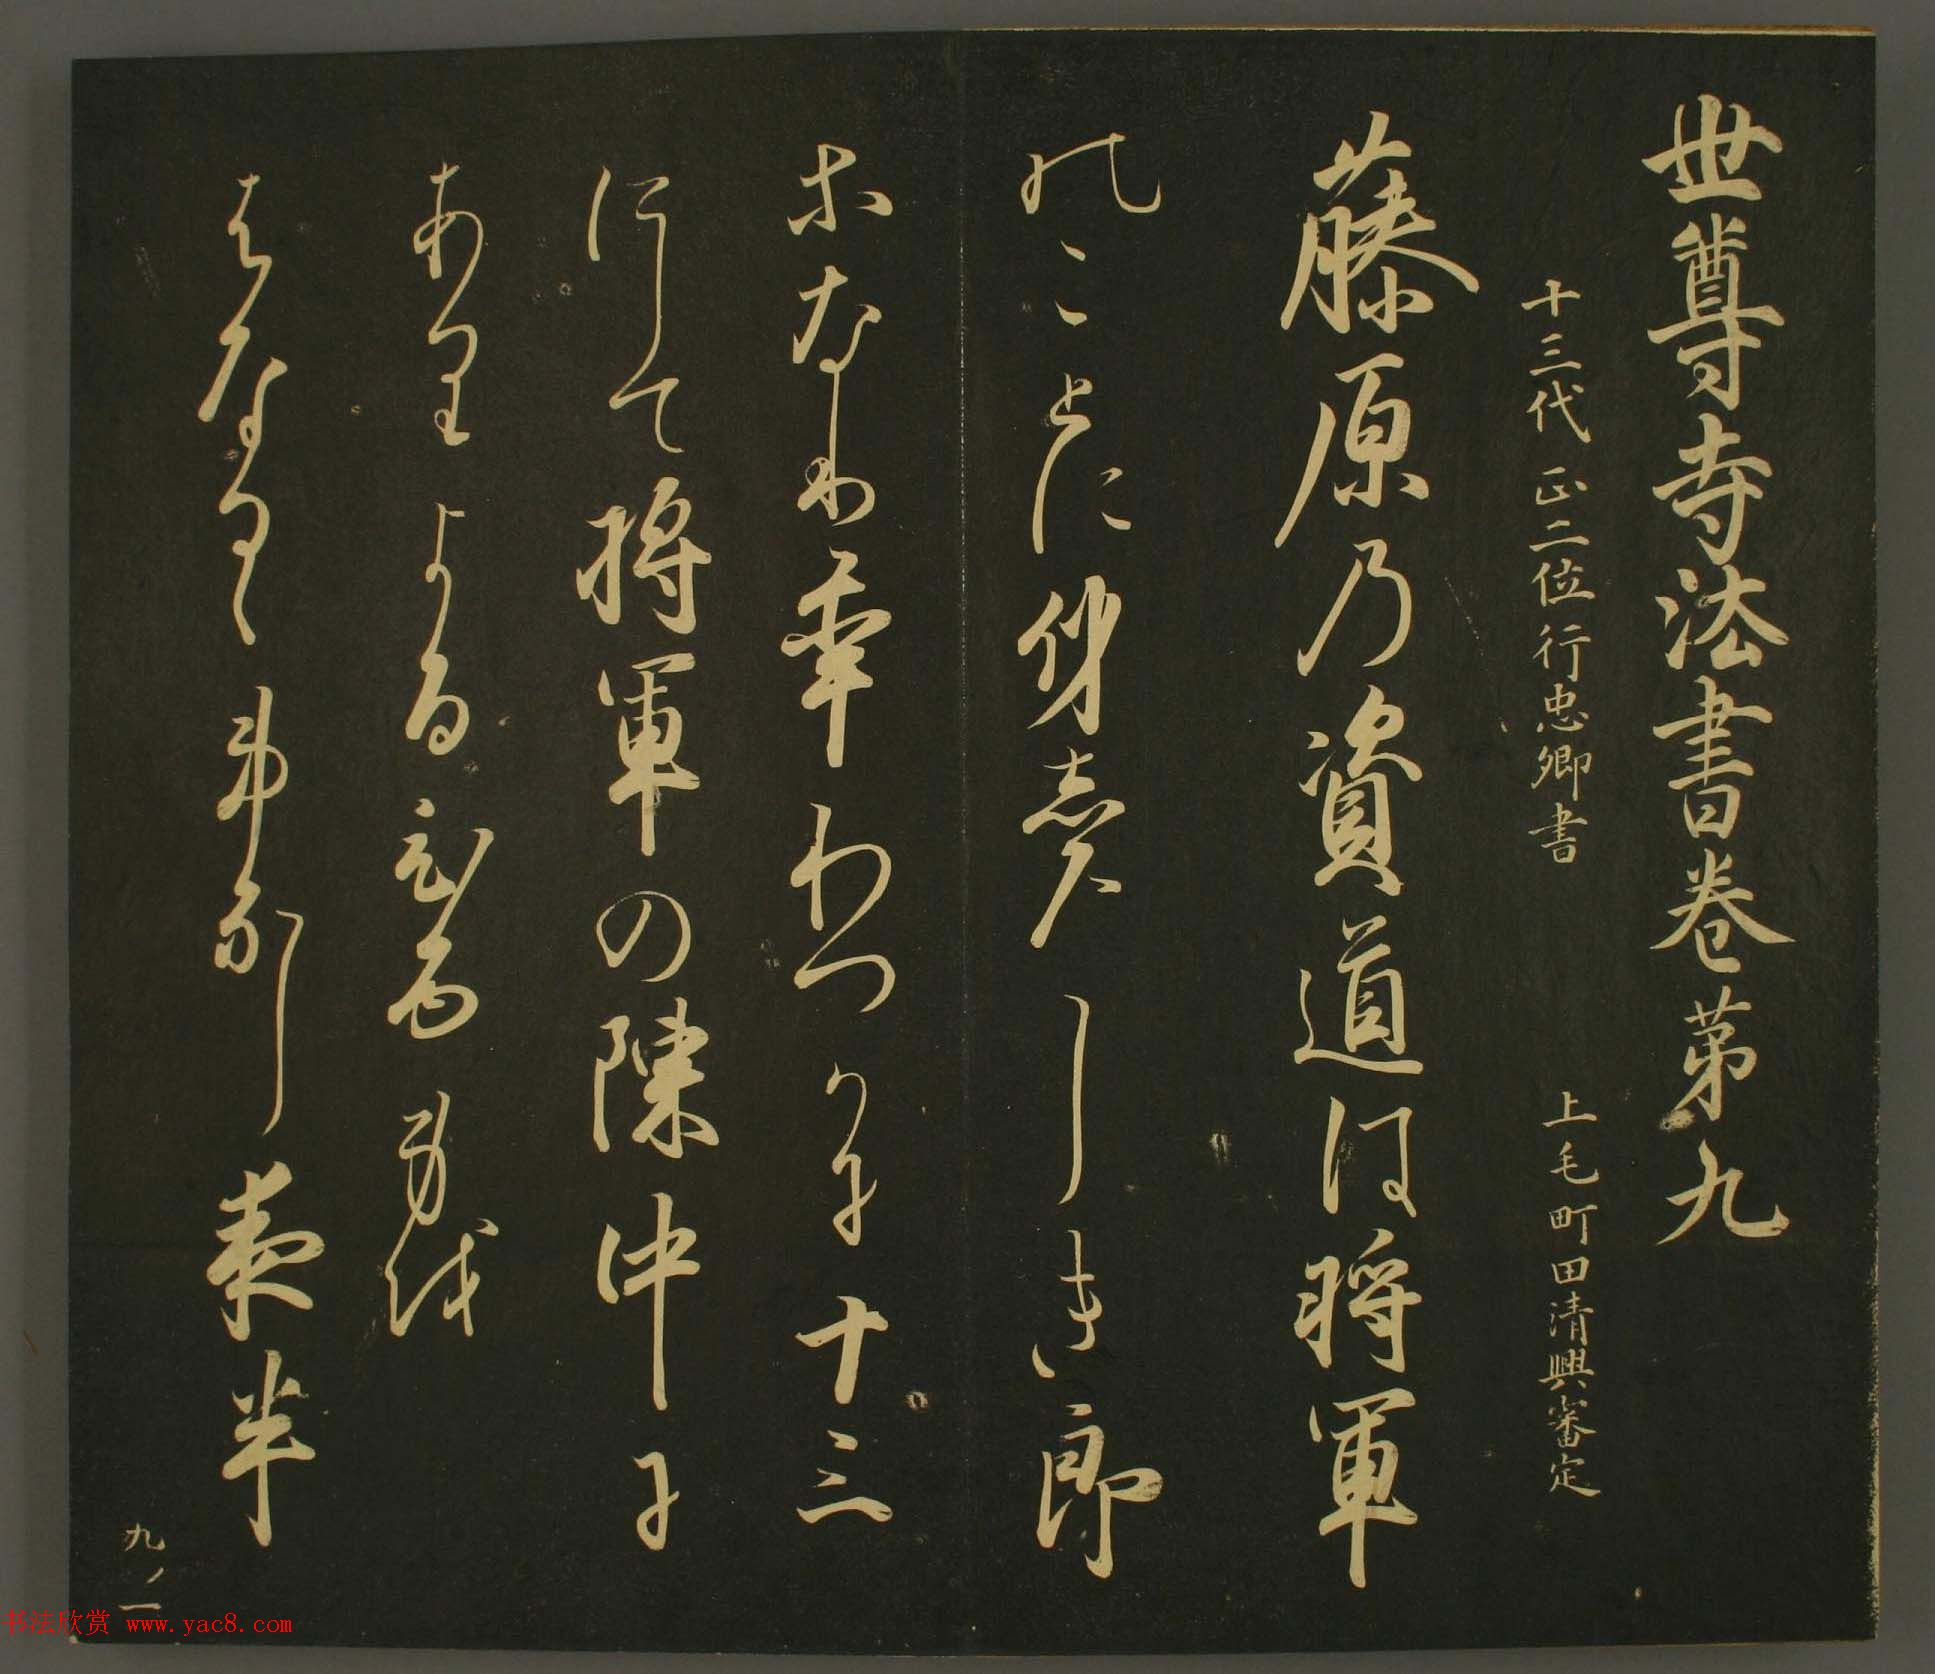 世尊寺法書卷第九
十三代 正二位行忠卿書 上毛町田清興審定
藤原乃資道は将軍
のことに身したしき郎
等なり年わつかに十三
にして将軍の陳中に
ありよるひる身を
はなるゝ事なし夜半
九ノ一
书法欣赏 www.yac8.com